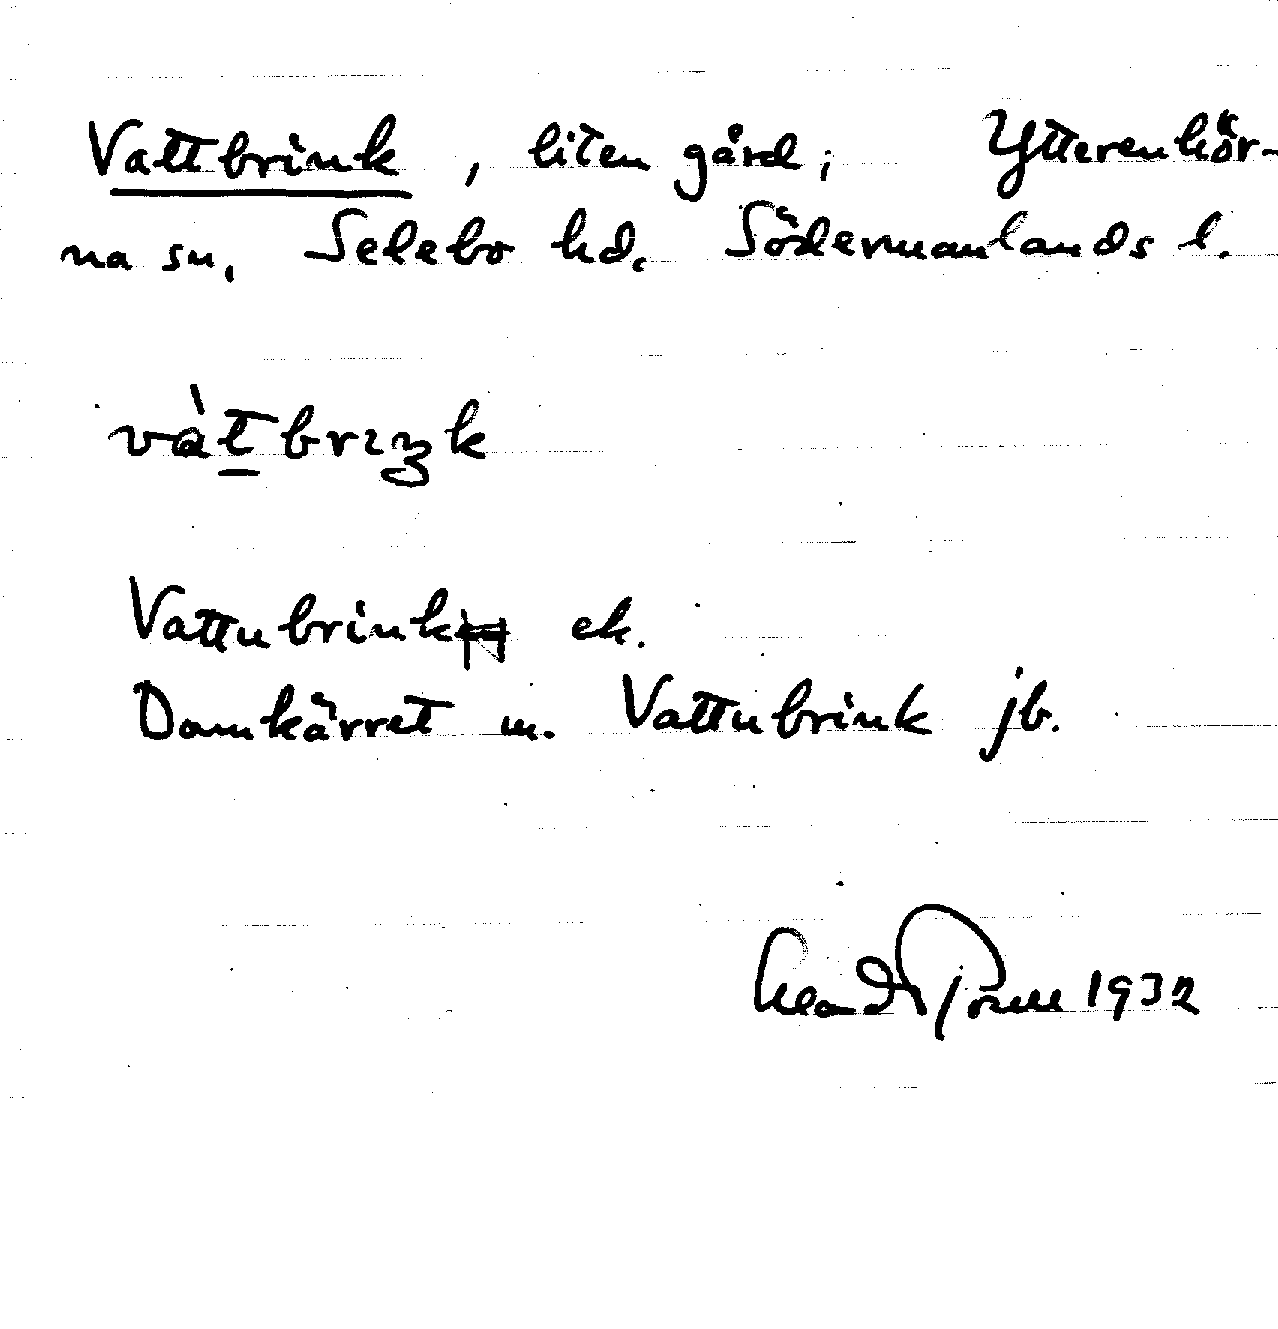 Vattbrink, liten gård, Ytterenhör-
na sn, Selebo hd. Södermanlands l.
vàt̲brıŋk
Vattubrink ek.
Damkärret m. Vattubrink jb.
1932